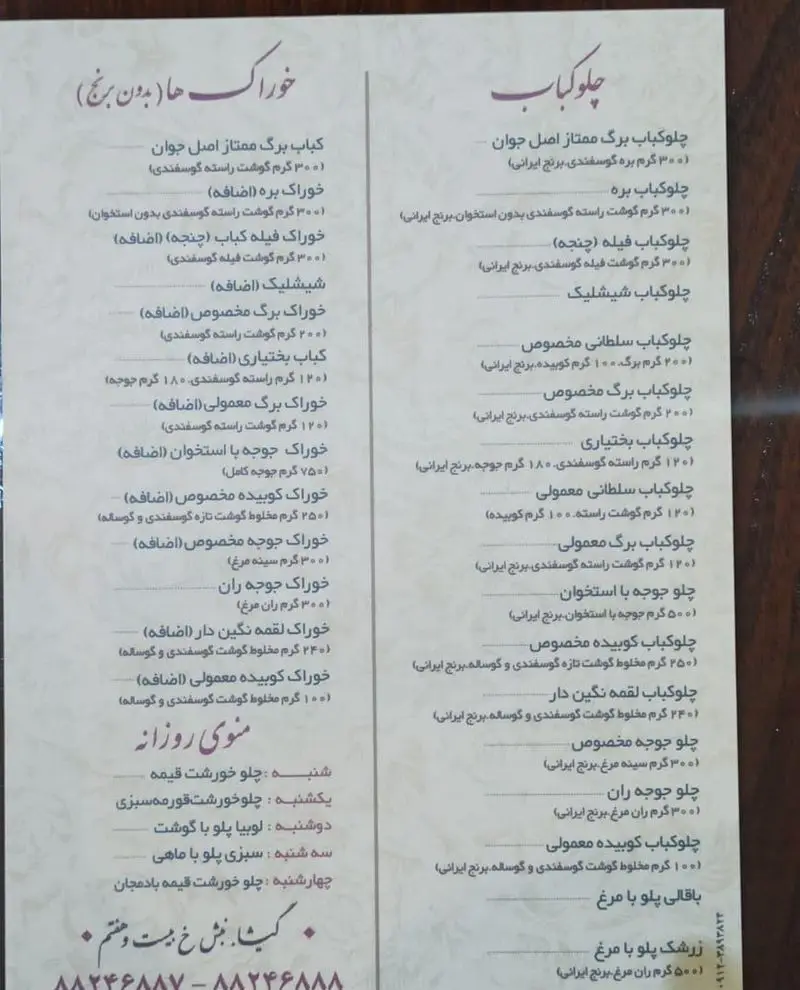 چلوکباب
چلوکباب برگ ممتاز اصل جوان
(۳۰۰ گرم بره گوسفندی.برنج ایرانی)
چلوکباب بره
(۳۰۰ گرم گوشت راسته گوسفندی بدون استخوان.برنج ایرانی)
چلوکباب فیله (چنجه)
(۳۰۰ گرم گوشت فیله گوسفندی.برنج ایرانی)
چلوکباب شیشلیک
چلوکباب سلطانی مخصوص
(۲۰۰ گرم برگ.۱۰۰ گرم کوبیده.برنج ایرانی)
چلوکباب برگ مخصوص
(۲۰۰ گرم گوشت راسته گوسفندی.برنج ایرانی)
چلوکباب بختیاری
(۱۲۰ گرم راسته گوسفندی.۱۸۰ گرم جوجه.برنج ایرانی)
چلوکباب سلطانی معمولی
(۱۲۰ گرم گوشت راسته.۱۰۰ گرم کوبیده)
چلوکباب برگ معمولی
(۱۲۰ گرم گوشت راسته گوسفندی.برنج ایرانی)
چلو جوجه با استخوان
(۵۰۰ گرم جوجه با استخوان.برنج ایرانی)
چلوکباب کوبیده مخصوص
(۲۵۰ گرم مخلوط گوشت تازه گوسفندی و گوساله.برنج ایرانی)
چلوکباب لقمه نگین دار
(۲۴۰ گرم مخلوط گوشت گوسفندی و گوساله.برنج ایرانی)
چلو جوجه مخصوص
(۳۰۰ گرم سینه مرغ.برنج ایرانی)
چلو جوجه ران
(۳۰۰ گرم ران مرغ.برنج ایرانی)
چلوکباب کوبیده معمولی
(۱۰۰ گرم مخلوط گوشت گوسفندی و گوساله.برنج ایرانی)
باقالی پلو با مرغ
زرشک پلو با مرغ
(۵۰۰ گرم ران مرغ.برنج ایرانی)
خوراک ها (بدون برنج)
کباب برگ ممتاز اصل جوان
(۳۰۰ گرم گوشت راسته گوسفندی)
خوراک بره (اضافه)
(۳۰۰ گرم گوشت راسته گوسفندی بدون استخوان)
خوراک فیله کباب (چنجه) (اضافه)
(۳۰۰ گرم گوشت فیله گوسفندی)
شیشلیک (اضافه)
خوراک برگ مخصوص (اضافه)
(۲۰۰ گرم گوشت راسته گوسفندی)
کباب بختیاری (اضافه)
(۱۲۰ گرم راسته گوسفندی.۱۸۰ گرم جوجه)
خوراک برگ معمولی (اضافه)
(۱۲۰ گرم گوشت راسته گوسفندی)
خوراک جوجه با استخوان (اضافه)
(۷۵۰ گرم جوجه کامل)
خوراک کوبیده مخصوص (اضافه)
(۲۵۰ گرم مخلوط گوشت تازه گوسفندی و گوساله)
خوراک جوجه مخصوص (اضافه)
(۳۰۰ گرم سینه مرغ)
خوراک جوجه ران
(۳۰۰ گرم ران مرغ)
خوراک لقمه نگین دار (اضافه)
(۲۴۰ گرم مخلوط گوشت گوسفندی و گوساله)
خوراک کوبیده معمولی (اضافه)
(۱۰۰ گرم مخلوط گوشت گوسفندی و گوساله)
منوی روزانه
شنبـــه : چلو خورشت قیمه
یکشنبـه : چلوخورشت‌قورمه‌سبزی
دوشنبه : لوبیا پلو با گوشت
سه شنبه : سبزی پلو با ماهی
چهارشنبه : چلو خورشت قیمه بادمجان
گیشا. نبش خ بیست و هفتم
۸۸۲۴۶۸۸۷ – ۸۸۲۴۶۸۸۸